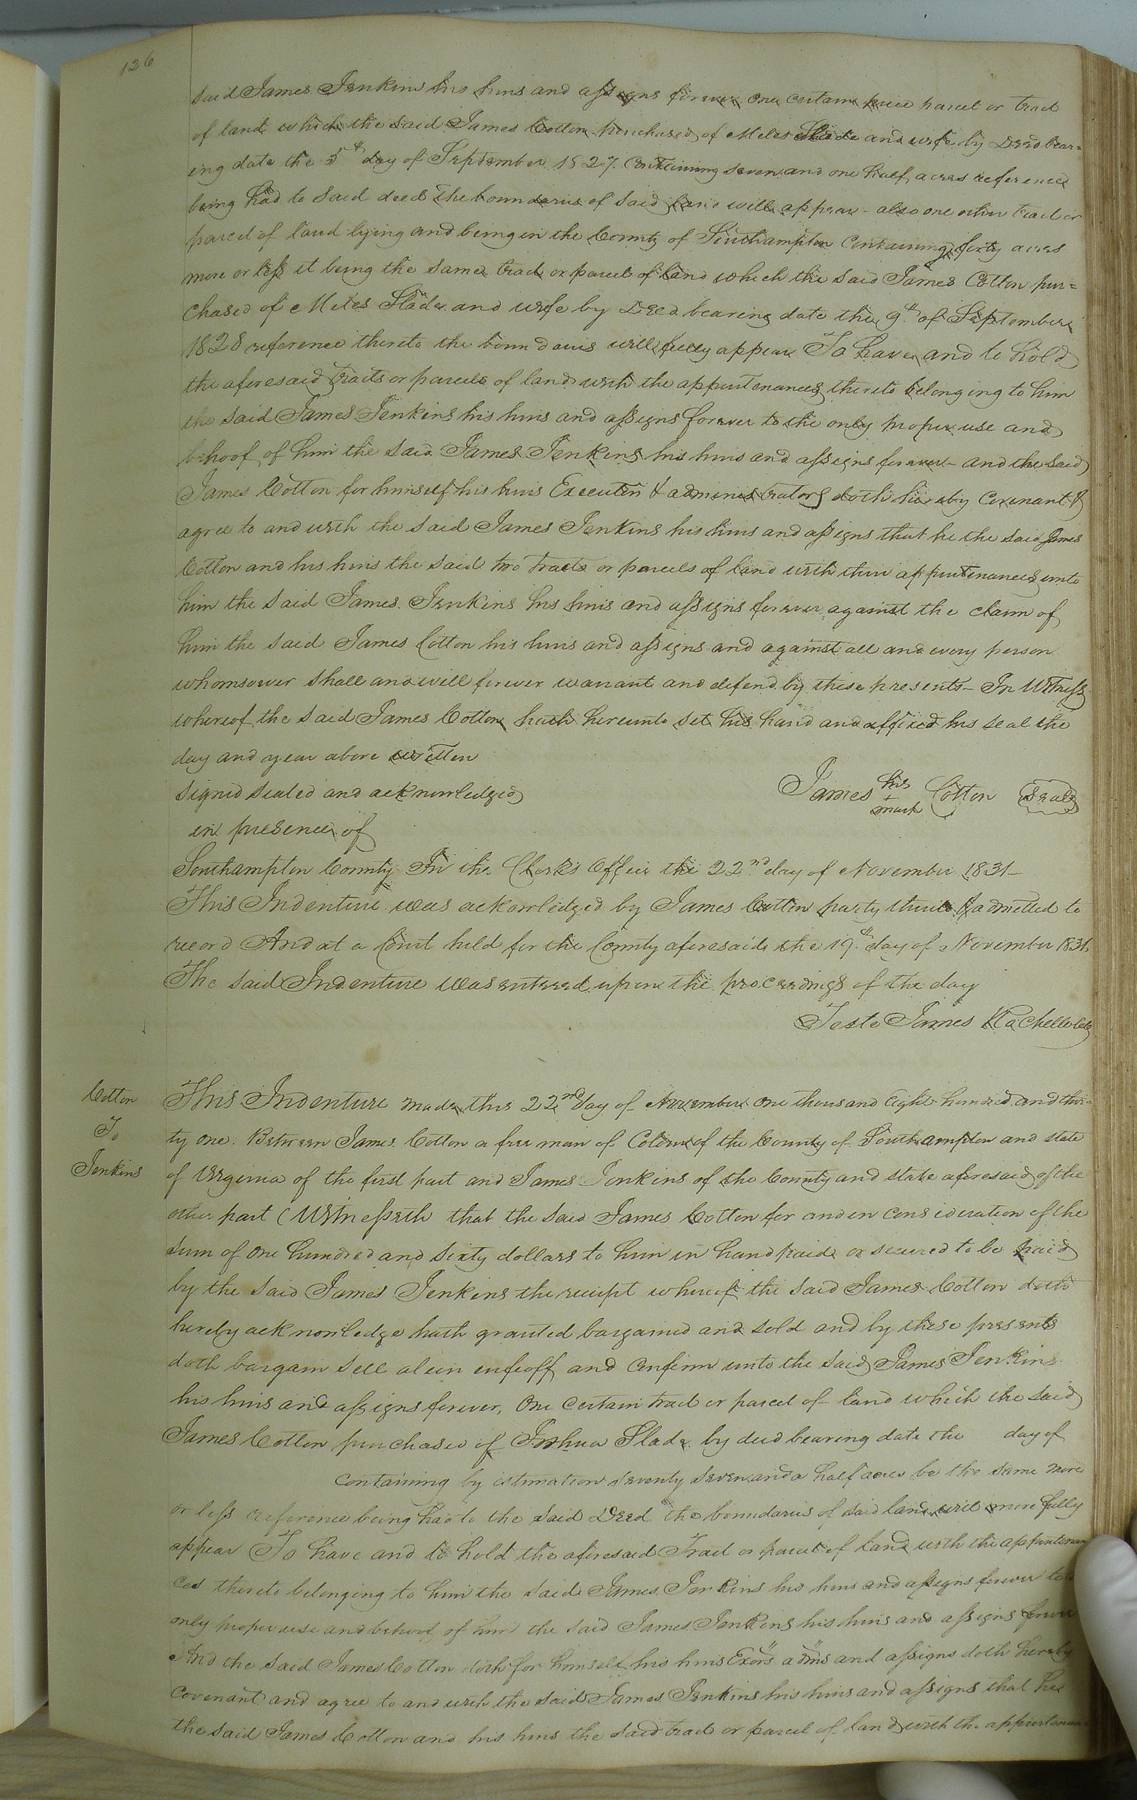 126
said James Jenkins his heirs and assigns forever one certain piece parcel or tract
of land which the said James Cotton purchased of Miles Slade and wife by Deed bear=
ing date the 5th day of September 1827. Containing seven and one half acres reference
being had to said deed the boundaries of said land will appear - also one other tract or
parcel of land lying and being in the County of Southampton Containing sixty acres
more or less it being the same tract or parcel of land which the said James Cotton pur=
chased of Miles Slade and wife by Deed bearing date the 9th of September
1828 reference thereto the boundaries will fully appear To have and to hold
the aforesaid tracts or parcels of land with the appurtenances thereto belonging to him
the said James Jenkins his heirs and assigns forever to the only proper use and
behoof of him the said James Jenkins his heirs and assigns forever - and the said
James Cotton for himself his heirs Executors & administrators doth hereby Covenant &
agree to and with the said James Jenkins his heirs and assigns that he the said James
Cotton and his heirs the said two tracts or parcels of land with their appurtenances unto
him the said James Jenkins his heirs and assigns forever against the claim of
him the said James Cotton his heirs and assigns and against all and every person
whomsoever shall and will forever warrant and defend by these presents - In Witness
whereof the said James Cotton hath hereunto set his hand and affixed his seal the
day and year above written
signed sealed and acknowledged
James his + mark Cotton Seal
in presence of
Southampton County In the Clerk's Office the 22nd day of November 1831 -
This Indenture was acknowledged by James Cotton party thereto & admitted to
record And at a Court held for the County aforesaid the 19th day of November 1831
The said Indenture was entered upon the proceedings of the day
Teste James Rochelle
Cotton
To
Jenkins
This Indenture made this 22nd day of November one thousand eight hundred and thir=
ty one. Between James Cotton a free man of Colour of the County of Southampton and state
of Virginia of the first part and James Jenkins of the County and state aforesaid of the
other part (Witnesseth that the said James Cotton for and in consideration of the
sum of one hundred and sixty dollars to him in hand paid or secured to be paid
by the said James Jenkins the receipt whereof the said James Cotton doth
hereby acknowledge hath granted bargained and sold and by these presents
doth bargain sell alien enfeoff and confirm unto the said James Jenkins
his heirs and assigns forever, One certain tract or parcel of land which the said
James Cotton purchased of Joshua Slade by deed bearing date the day of
containing by estimation seventy seven and a half acres be the same more
or less reference being had to the said Deed the boundaries of said land will more fully
appear To have and to hold the aforesaid Tract or parcel of land with the appurtenan
ces thereto belonging to him the said James Jenkins his heirs and assigns forever to
only proper use and behoof of him the said James Jenkins his heirs and assigns forever
And the said James Cotton doth for himself his heirs Exors adms and assigns doth hereby
covenant and agree to and with the said James Jenkins his heirs and assigns that he
the said James Cotton and his heirs the said tract or parcel of land with the appurtenan